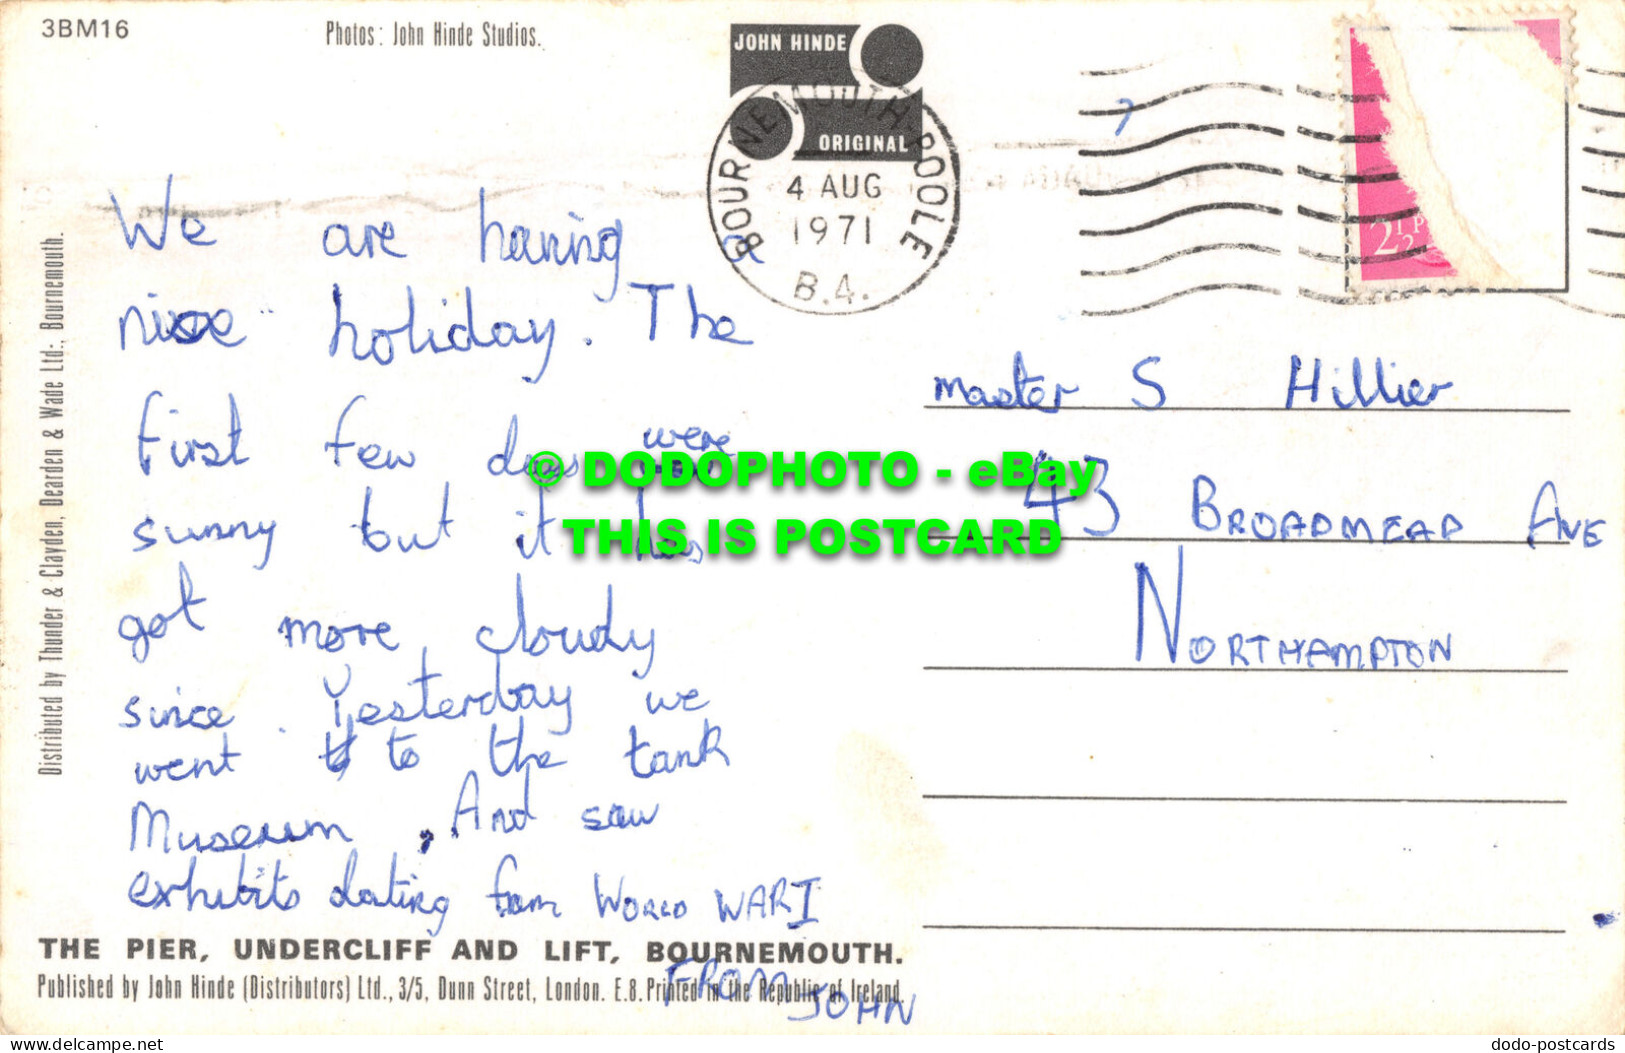 3BM16
Photos: John Hinde Studios.
JOHN HINDE
ORIGINAL
BOURNEMOUTH-POOLE
4 AUG
1971
B.4.
2½P
We are having a
nice holiday. The
first few days were
sunny but it has
got more cloudy
since. Yesterday we
went to the tank
Museum. And saw
exhibits dating from WORLD WAR I
FROM JOHN
Master S Hillier
43 BROADMEAD AVE
NORTHAMPTON
© DODOPHOTO - eBay
THIS IS POSTCARD
Distributed by Thunder & Clayden, Dearden & Wade Ltd., Bournemouth.
THE PIER, UNDERCLIFF AND LIFT, BOURNEMOUTH.
Published by John Hinde (Distributors) Ltd., 3/5, Dunn Street, London. E.8. Printed in the Republic of Ireland.
delcampe.net
dodo-postcards